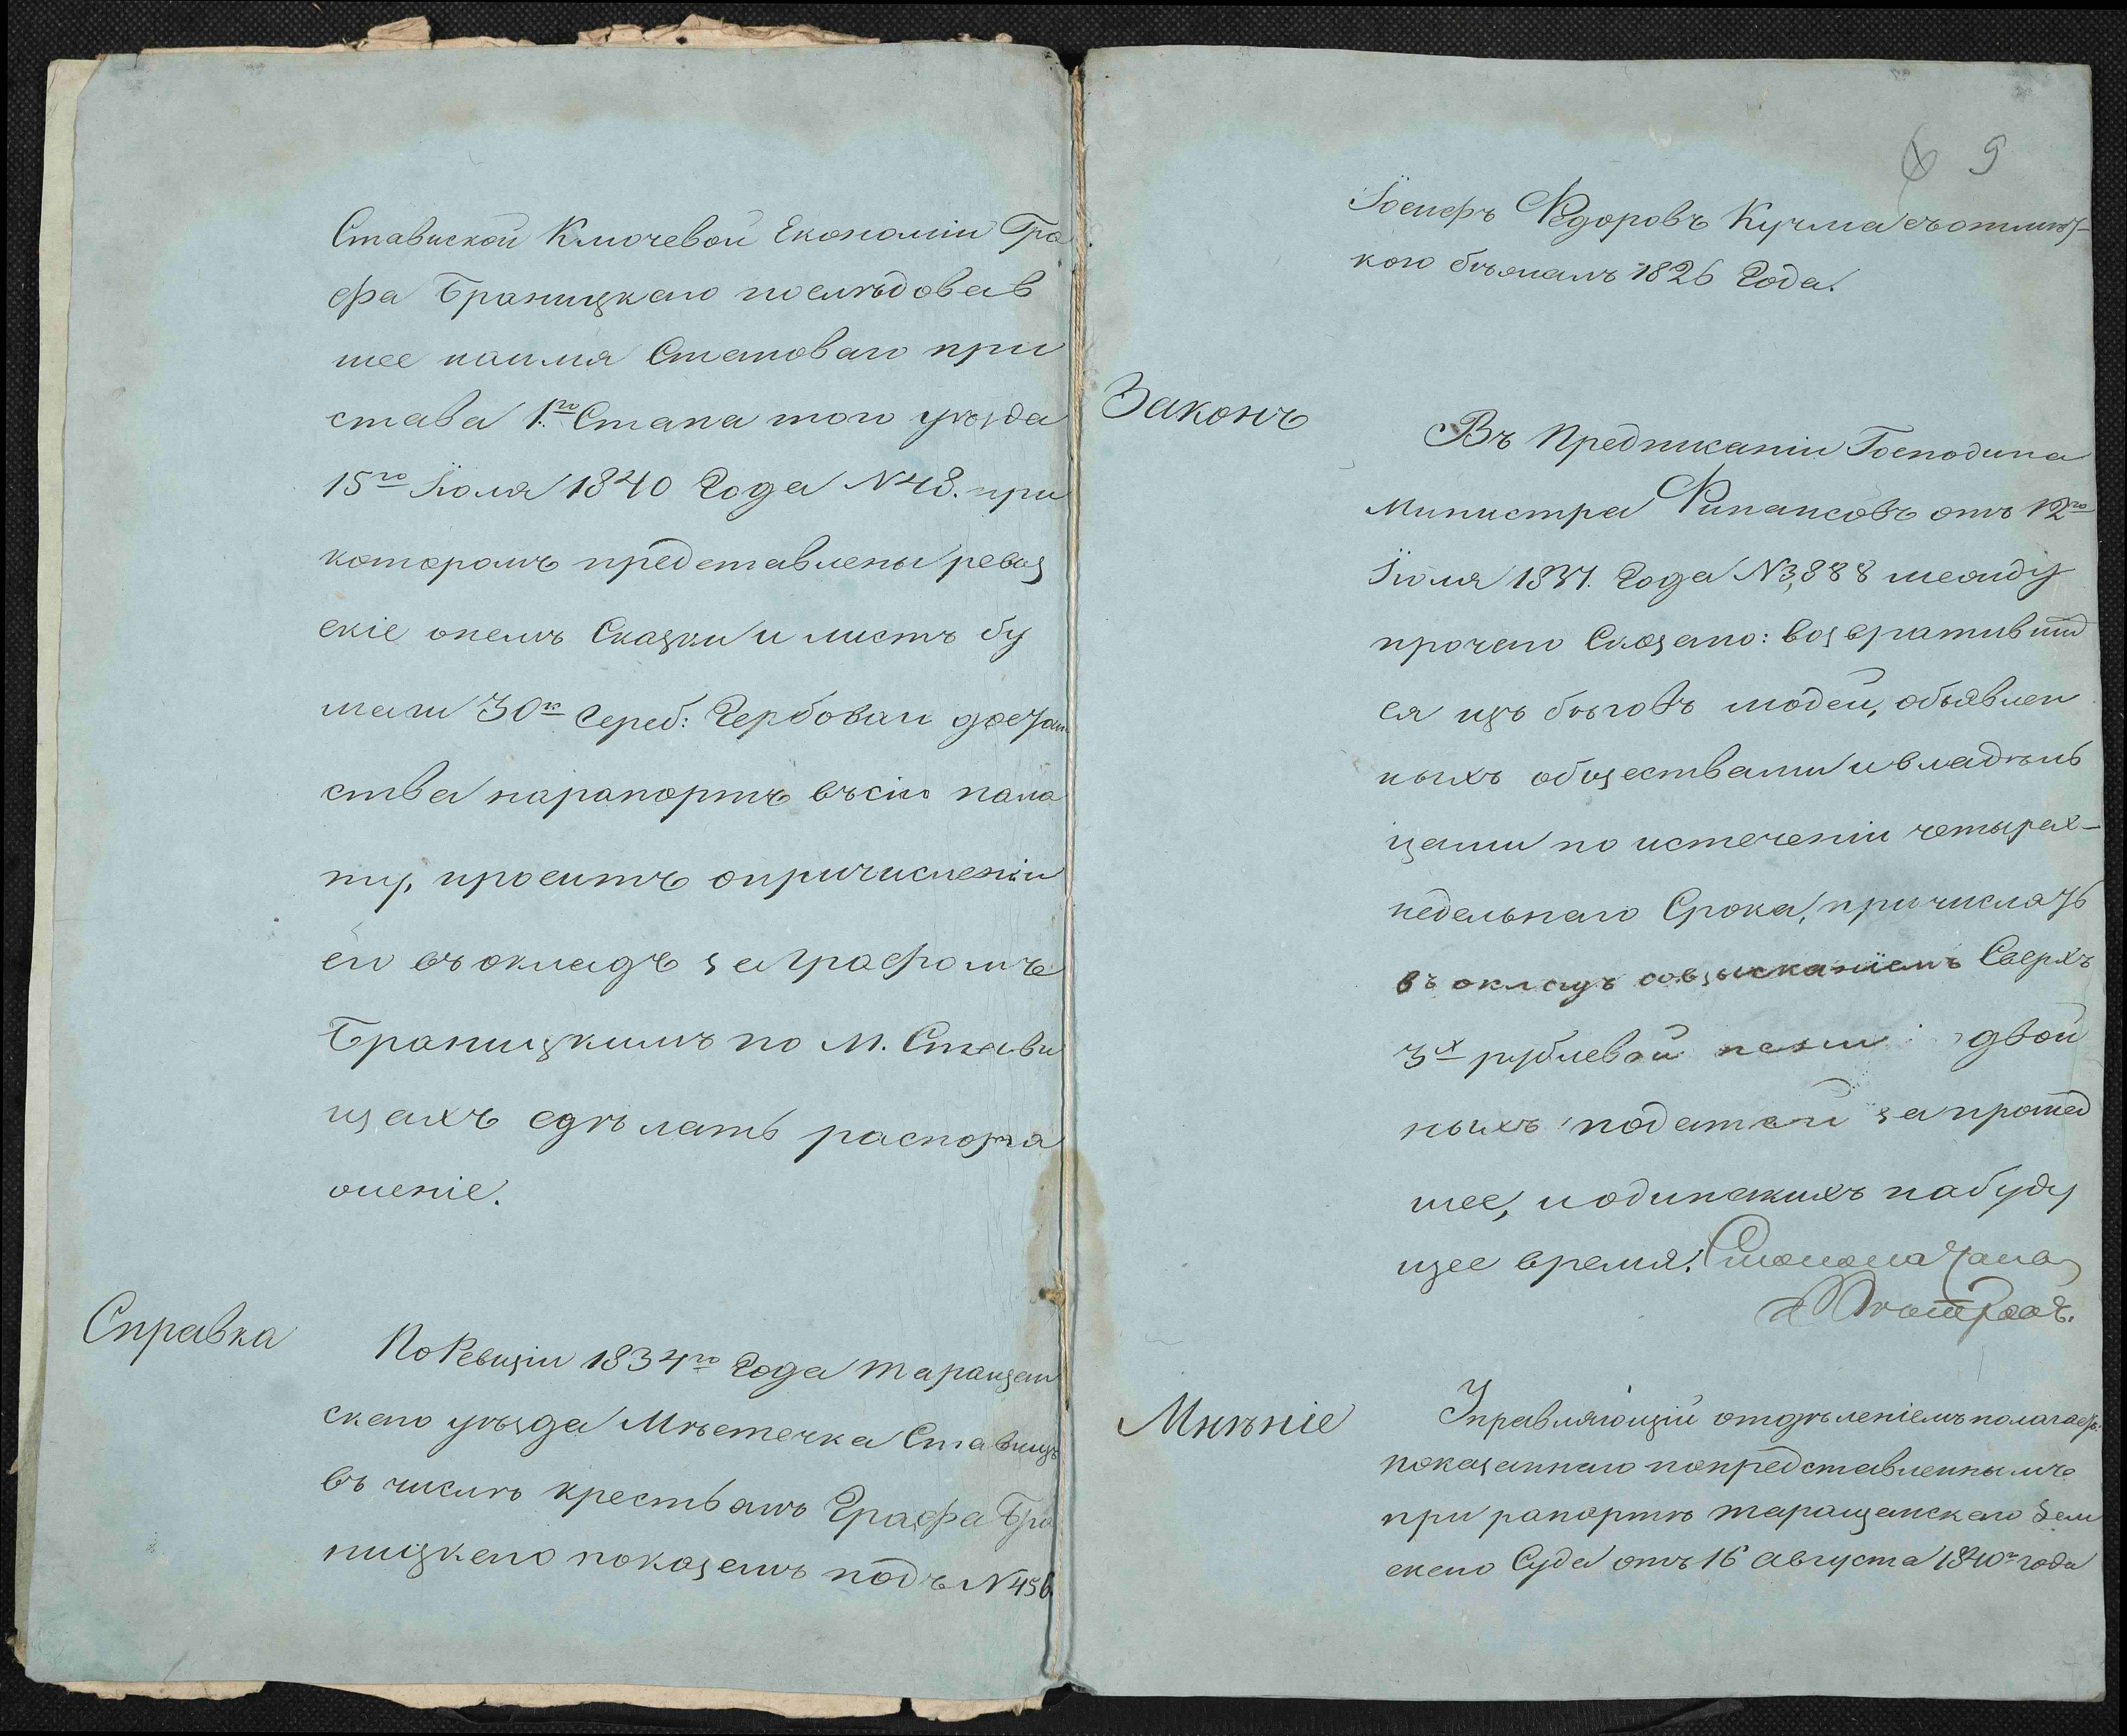 Ставиской Ключевой Економіи Гра
фа Браницкаго последовав
шее наимя Становаго при
става 1го Стана того уѣзда
15го Іюля 1840 Года N 48. при
которомъ представлены ревиз
скіе онемъ Сказки и листъ бу
маги 30к сереб: Гербоваго достои
ства нарапортъ въсію пала
ту, проситъ опричисленіи
его въокладъ заграфомъ
Браницкимъ по м. Стави
щахъ сдѣлать распоря
женіе.
Справка
По Ревизіи 1834го Года таращан
скаго уѣзда Мѣстечка Ставищъ
въ числѣ крестьянъ Графа Бра
ницкаго показанъ подъ N 456
9
Іосифъ Федоровъ Кучма съотмѣт-
кою бѣжалъ 1826 Года.
Законъ
Въ Предписаніи Господина
Министра Финансовъ отъ 12го
Іюля 1837. Года N 3,888 между
прочаго Сказано: возвратившид
ся изъ бѣговъ людей, объявлен
ныхъ обществами ивладѣль
цами по истеченіи четырех-
недельнаго Срока, причислять
въ окладъ совзысканіемъ Сверхъ
3х рублевой пени двой
ныхъ податей запрошед
шее, иодинакихъ набуду
щее время.
Мнѣніе
Управляющій отдѣленіемъ полагаетъ:
показаннаго попредставленнымъ
при рапортѣ таращанскаго Зем
скаго Суда отъ 16 августа 1840го года